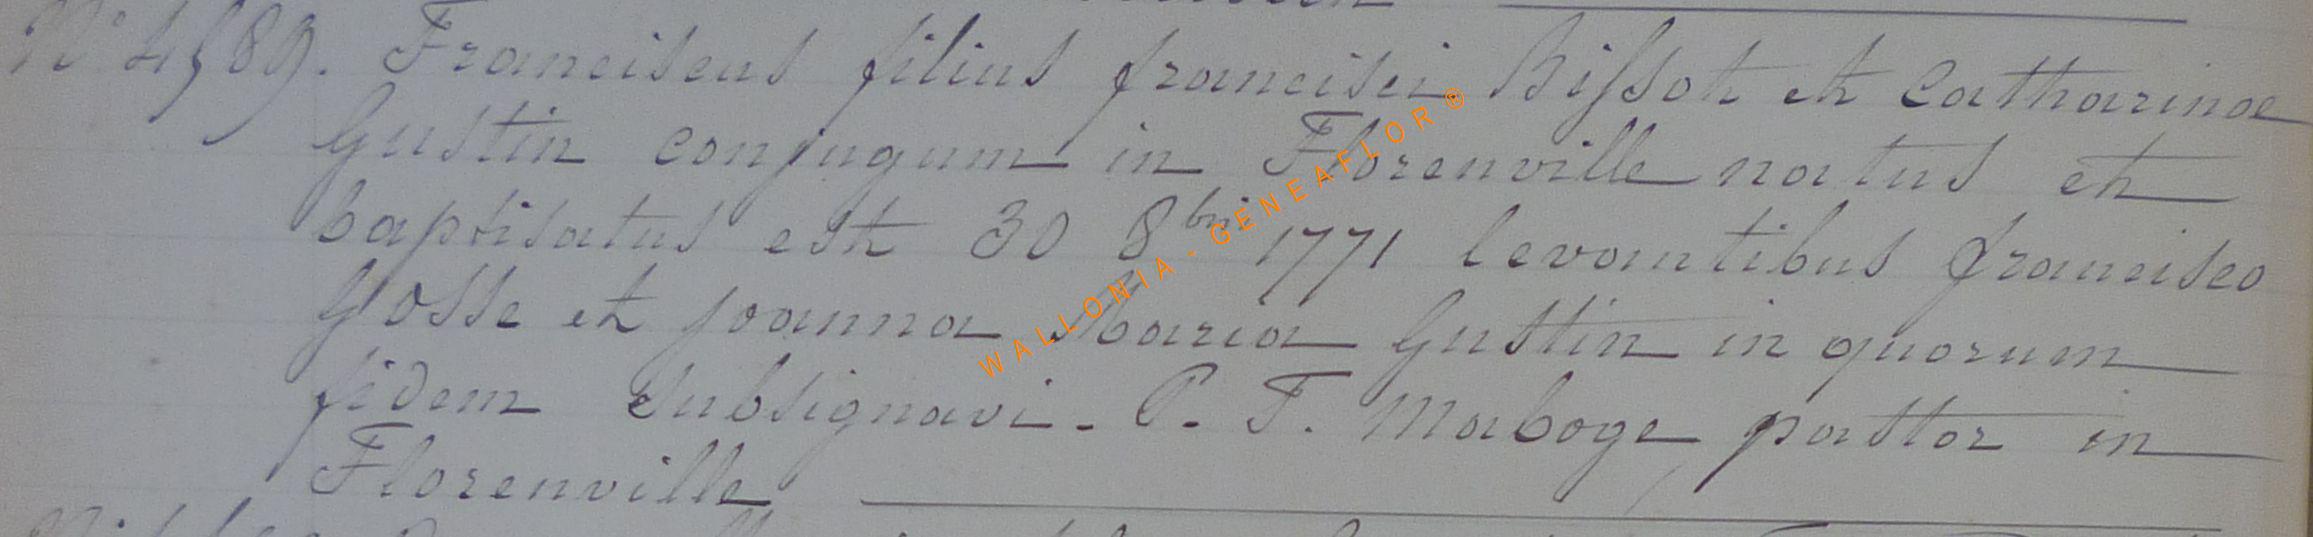 N° 4589. Franciscus filius francisci Bissot et Catharinae
Gustin conjugum in Florenville natus et
baptisatus est 30 8bris 1771 levantibus francisco
Gosse et joanna Maria Gustin in quorum
fidem subsignavi. C. F. Maboge pastor in
Florenville
WALLONIA - GENEAFLOR ®